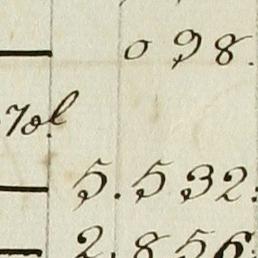 098.
5.532:
2.856